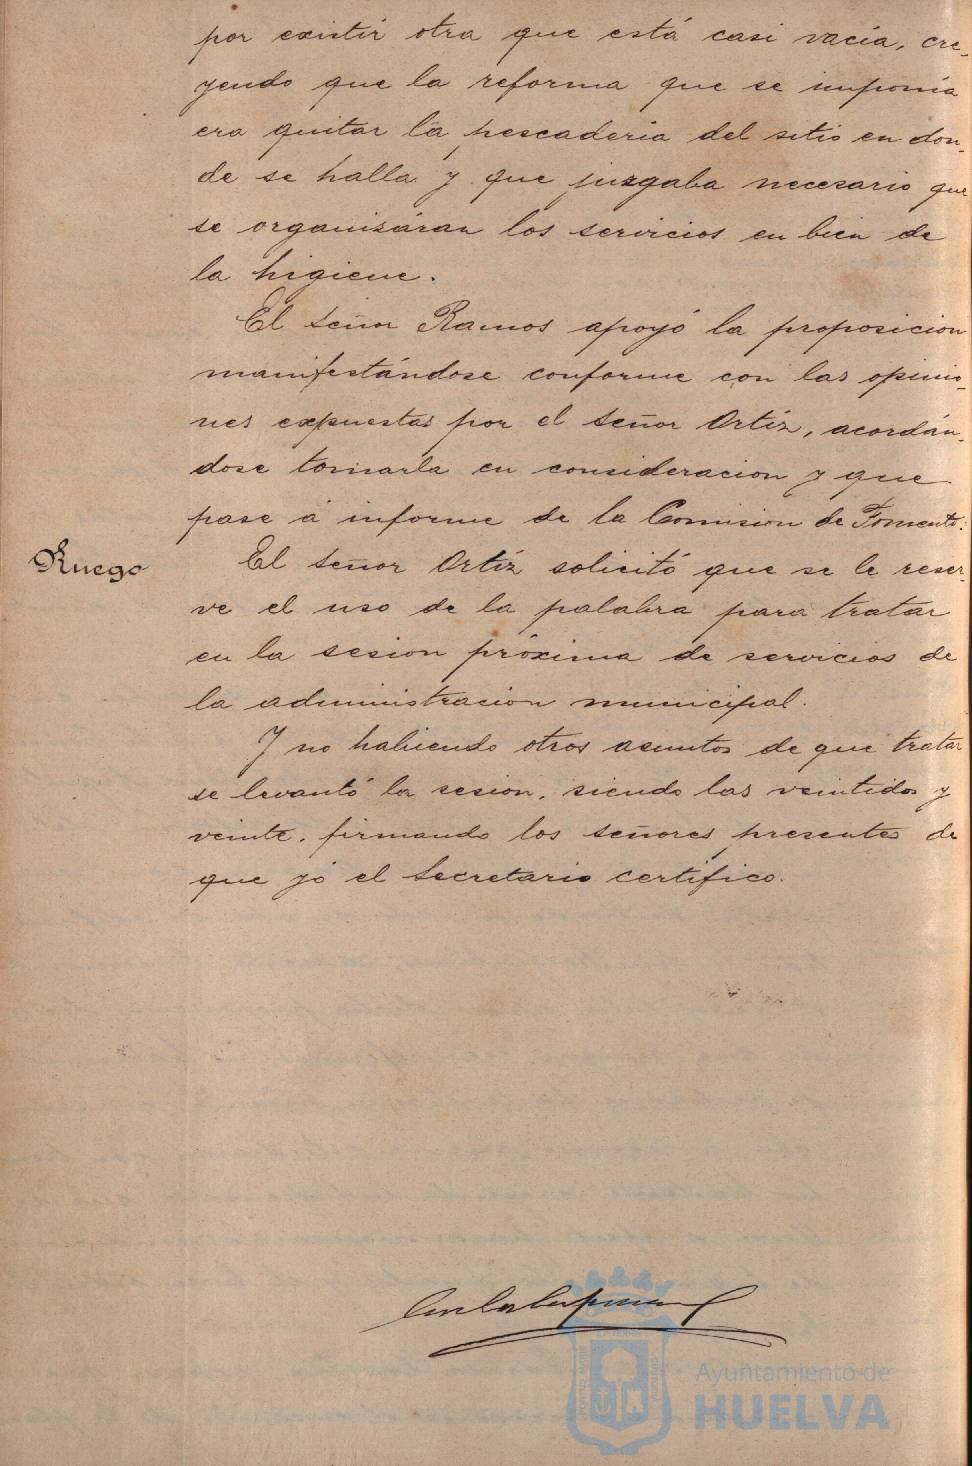 por existir otra que está casi vacía, cre-
yendo que la reforma que se imponía
era quitar la pescaderia del sitio en don-
de se halla y que juzgaba necesario que
se organizáran los servicios en bien de
la higiene.
El Señor Ramos apoyó la proposicion
manifestándose conforme con las opinio-
nes expuestas por el Señor Ortíz, acordán-
dose tomarla en consideracion y que
pase á informe de la Comision de Fomento.
Ruego
El Señor Ortíz solicitó que se le reser-
ve el uso de la palabra para tratar
en la sesion próxima de servicios de
la administracion municipal.
Y no habiendo otros asuntos de que tratar
se levantó la sesion, siendo las veintidos y
veinte, firmando los señores presentes de
que yó el Secretario certifico.
Ayuntamiento de
HUELVA